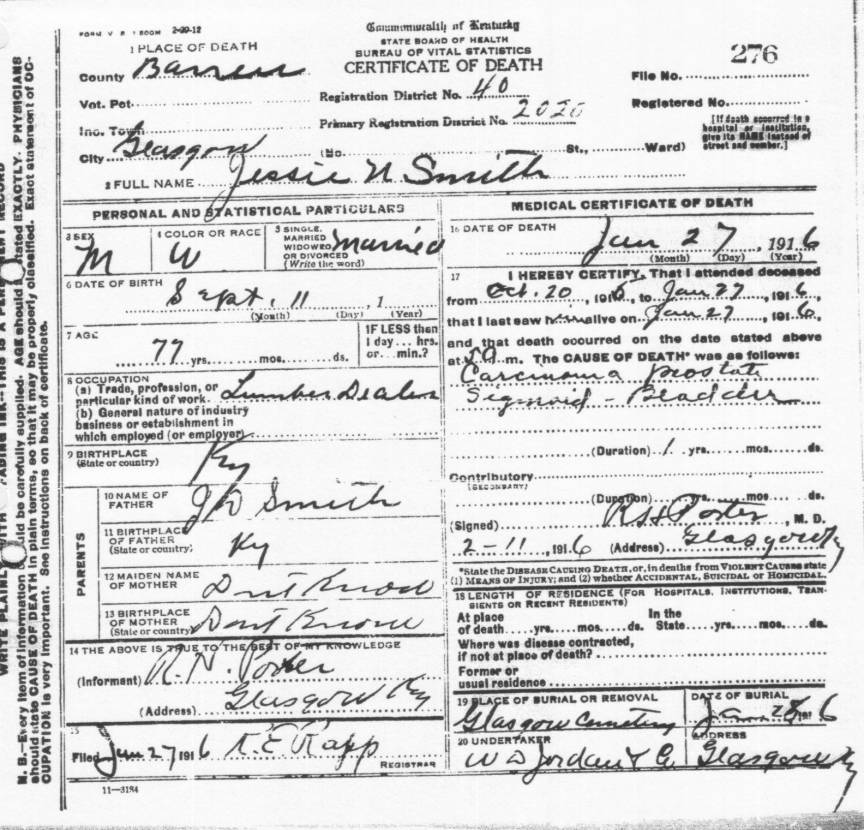 FORM V. S. 1 500M 2-29-12
Commonwealth of Kentucky
STATE BOARD OF HEALTH
BUREAU OF VITAL STATISTICS
CERTIFICATE OF DEATH
276
1 PLACE OF DEATH
County Barren
Vot. Pct.
Inc. Town
City Glasgow
Registration District No. 40
Primary Registration District No. 2020
(No. St., Ward)
File No.
Registered No.
[If death occurred in a
hospital or institution,
give its NAME instead of
street and number.]
2 FULL NAME Jessie N Smith
PERSONAL AND STATISTICAL PARTICULARS
3 SEX M
4 COLOR OR RACE W
5 SINGLE,
MARRIED
WIDOWED
OR DIVORCED
(Write the word) Married
6 DATE OF BIRTH
Sept. 11, 1
(Month) (Day) (Year)
7 AGE
77 yrs. mos. ds.
IF LESS than
1 day... hrs.
or... min.?
8 OCCUPATION
(a) Trade, profession, or
particular kind of work Lumber Dealer
(b) General nature of industry
business or establishment in
which employed (or employer)
9 BIRTHPLACE
(State or country) Ky
PARENTS
10 NAME OF
FATHER J D Smith
11 BIRTHPLACE
OF FATHER
(State or country) Ky
12 MAIDEN NAME
OF MOTHER Dont Know
13 BIRTHPLACE
OF MOTHER
(State or country) Dont Know
14 THE ABOVE IS TRUE TO THE BEST OF MY KNOWLEDGE
(Informant) R. H. Porter
(Address) Glasgow Ky
15
Filed Jan 27 1916 R. E. Rapp
REGISTRAR
11—3184
MEDICAL CERTIFICATE OF DEATH
16 DATE OF DEATH
Jan 27, 1916
(Month) (Day) (Year)
17 I HEREBY CERTIFY, That I attended deceased
from Oct. 20, 1915, to Jan 27, 1916,
that I last saw him alive on Jan 27, 1916,
and that death occurred on the date stated above
at 5 a. m. The CAUSE OF DEATH* was as follows:
Carcinoma prostate
Sigmoid - Bladder
(Duration) 1 yrs. mos. ds.
Contributory
(SECONDARY)
(Duration) yrs. mos. ds.
(Signed) Porter, M. D.
2-11, 1916 (Address) Glasgow Ky
*State the DISEASE CAUSING DEATH, or, in deaths from VIOLENT CAUSES state
(1) MEANS OF INJURY; and (2) whether ACCIDENTAL, SUICIDAL OR HOMICIDAL.
18 LENGTH OF RESIDENCE (FOR HOSPITALS, INSTITUTIONS, TRAN-
SIENTS OR RECENT RESIDENTS)
At place In the
of death yrs. mos. ds. State yrs. mos. ds.
Where was disease contracted,
if not at place of death?
Former or
usual residence
19 PLACE OF BURIAL OR REMOVAL
Glasgow Cemetery
DATE OF BURIAL
Jan. 28 1916
20 UNDERTAKER
W D Jordan & Co.
ADDRESS
Glasgow Ky
N. B.—Every item of information should be carefully supplied. AGE should be stated EXACTLY. PHYSICIANS
should state CAUSE OF DEATH in plain terms, so that it may be properly classified. Exact statement of OC-
CUPATION is very important. See instructions on back of certificate.